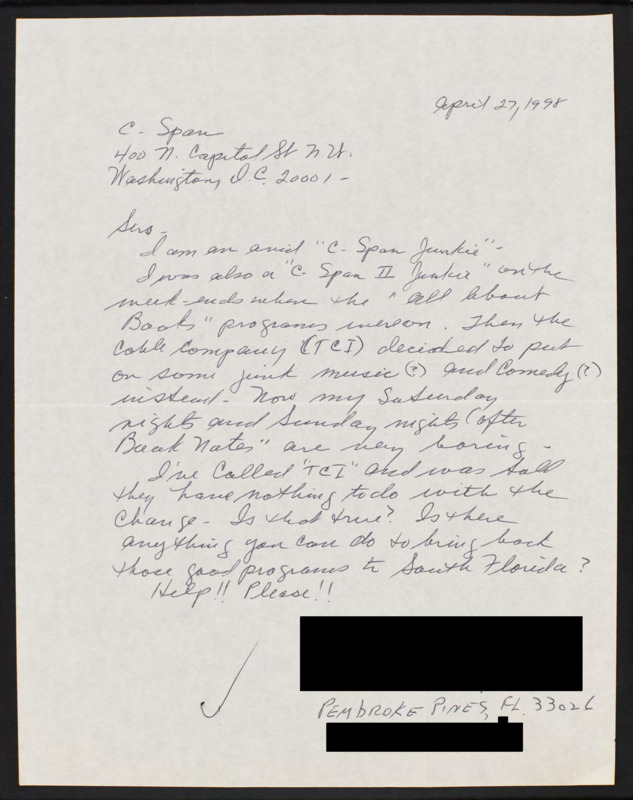 April 27, 1998
C- Span
400 N. Capitol St N.W.
Washington, D.C. 20001 -
Sirs -
I am an avid "C- Span Junkie" -
I was also a "C. Span II Junkie" on the
week-ends when the "All About
Books" programs were on. Then the
Cable Company (TCI) decided to put
on some junk music (?) and Comedy (?)
instead - Now my Saturday
nights and Sunday nights (after
Book Notes" are very boring -
I've Called "TCI" and was told
they have nothing to do with the
Change - Is that true? Is there
anything you can do to bring back
those good programs to South Florida?
Help!! Please!!
PEMBROKE PINES, FL. 33026